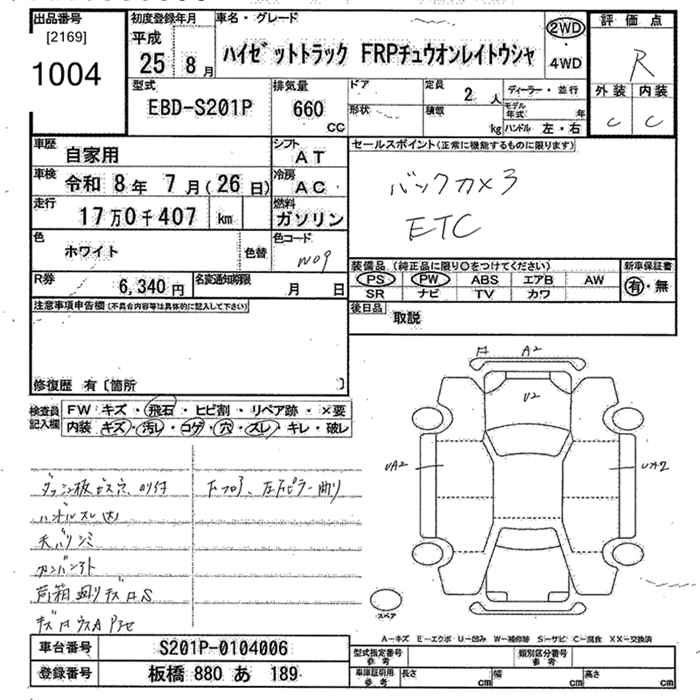 出品番号
[2169]
1004
初度登録年月
平成
25 8月
車名・グレード
ハイゼットトラック FRPチュウオンレイトウシャ
2WD
・
4WD
評価点
R
外装 内装
C C
型式
EBD-S201P
排気量
660
CC
ドア
形状
定員
2人
積数
kg
ディーラー・並行
モデル年式 年
ハンドル 左・右
車歴
自家用
シフト
AT
車検
令和 8年 7月(26日)
冷房
AC
走行
17万0千407 km
燃料
ガソリン
色
ホワイト
色替
色コード
W09
R券
6,340円
名変通知期限
月 日
セールスポイント(正常に機能するものに限ります)
バックカメラ
ETC
装備品 (純正品に限り○をつけてください)
PS PW ABS エアB AW
SR ナビ TV カワ
新車保証書
有・無
後日品
取説
注意事項申告欄(不具合内容等は具体的に記入して下さい)
修復歴 有〔箇所 〕
検査員記入欄
FW キズ・飛石・ヒビ割・リペア跡・×要
内装 キズ・汚レ・コゲ・穴・スレ・キレ・破レ
ダッシュ板ビス穴、のり付
下フロア、左右ピラー曲り
ハンドルスレ大
天バリシミ
カンバン跡
A2
U2
UA2
UA2
スペア
A-キズ E-エクボ U-凹み W-補修跡 S-サビ C-腐食 XX-交換済
車台番号
S201P-0104006
登録番号
板橋 880 あ 189
型式指定番号
参考
類別区分番号
参考
車庫証明用
参考
長さ cm
幅 cm
高さ cm